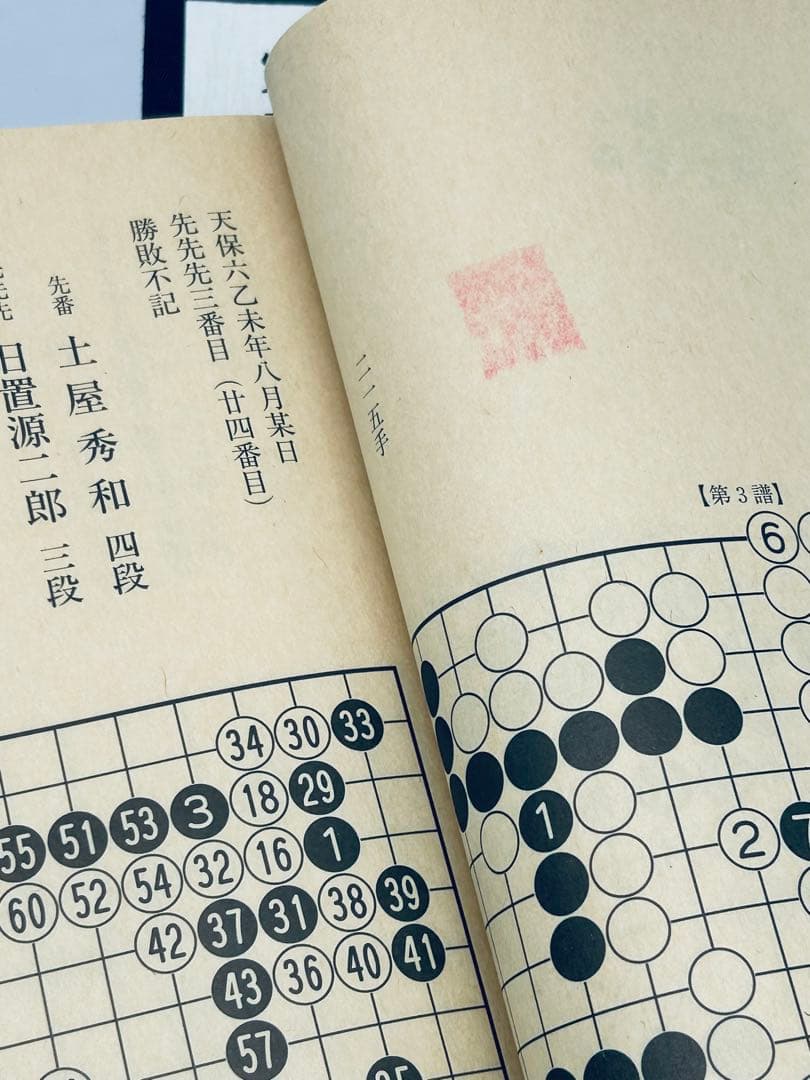 【第3譜】
6
1 2 7
二一五手
天保六乙未年八月某日
先先先三番目（廿四番目）
勝敗不記
先番 土屋秀和 四段
日置源二郎 三段
34 30 33
55 51 53 3 18 29
60 52 54 32 16 1
42 37 31 38 39
43 36 40 41
57